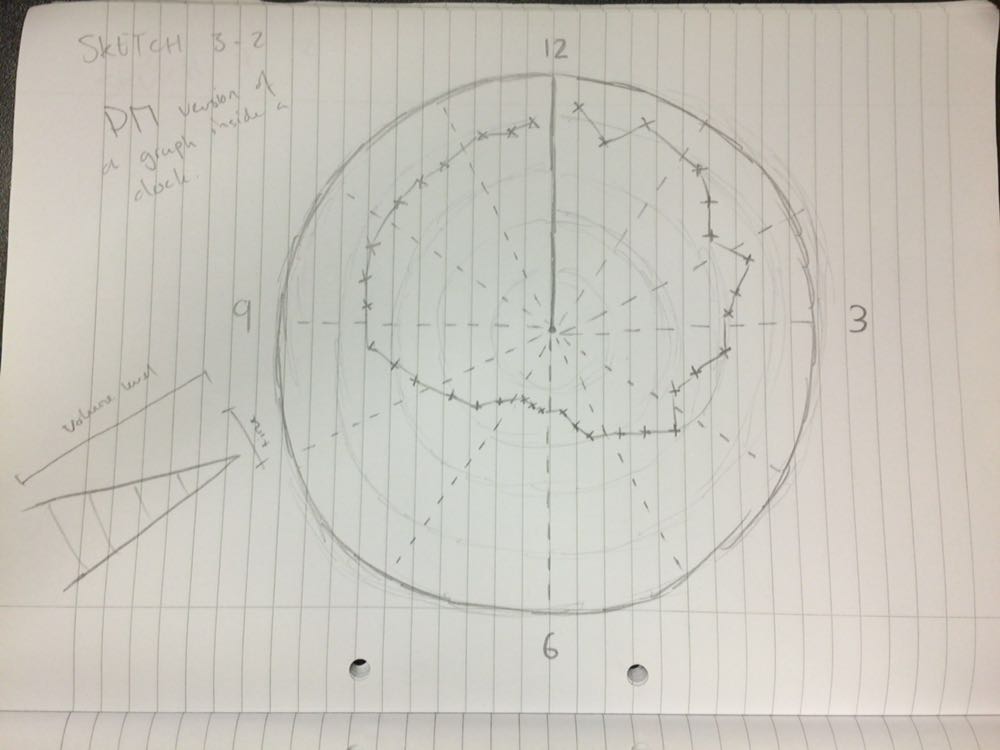 SKETCH 3-2
PM version of
a graph inside a
clock.
12
9
3
Volume level
6